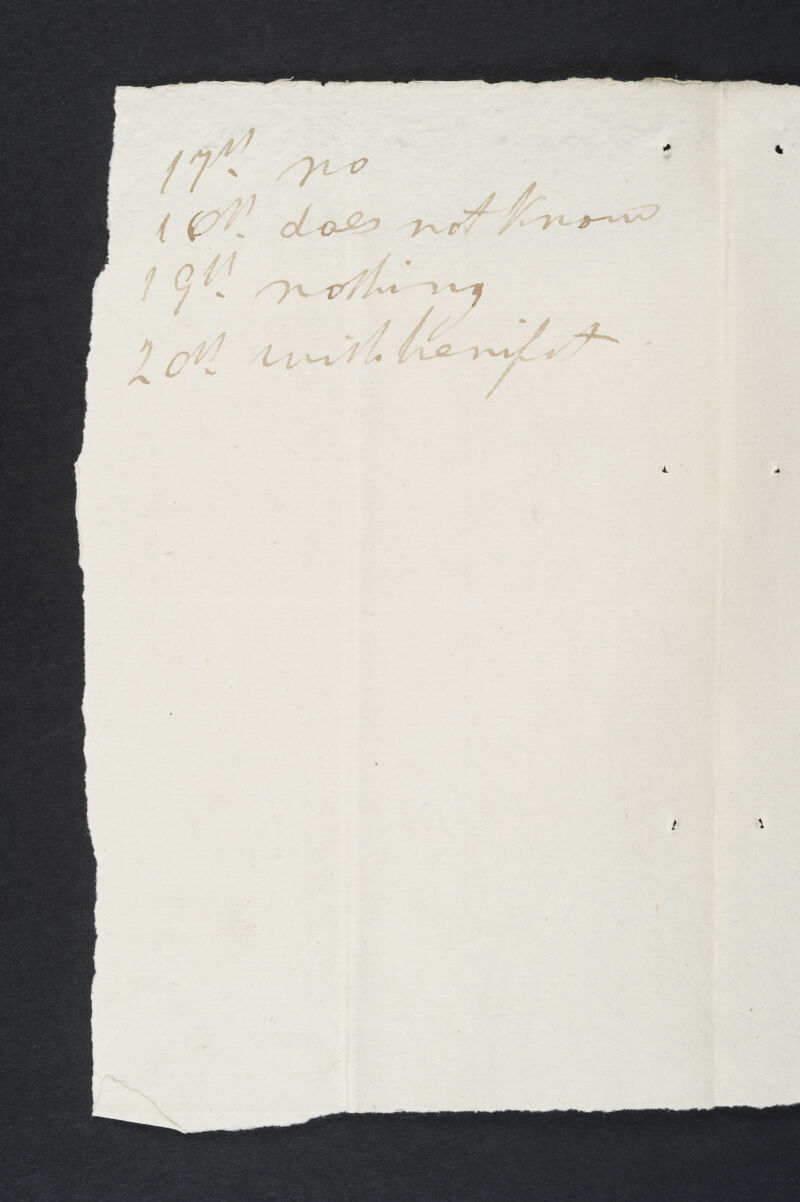 17th. no
18th. does not know
19th. nothing
20th. with benifit